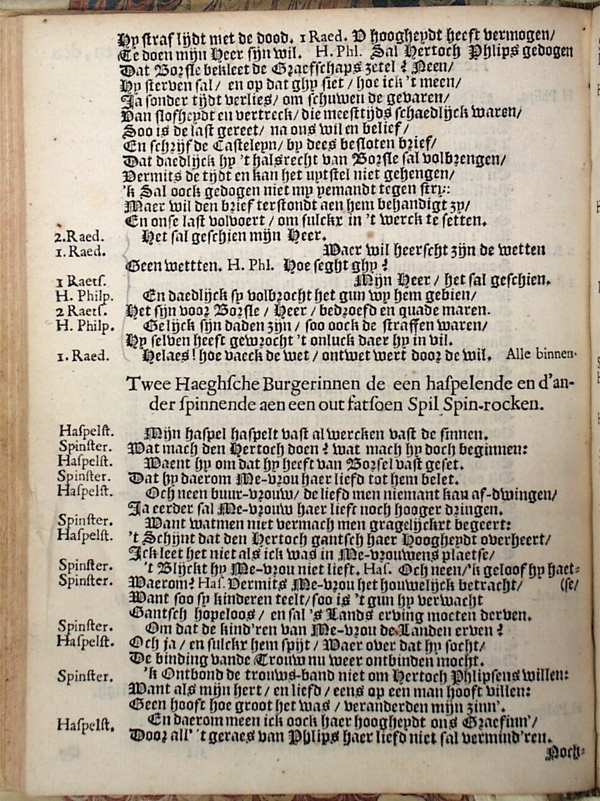 Hy straf lijdt met de dood. 1 Raed. V hoogheydt heeft vermogen/
Te doen mijn Heer sijn wil. H. Phl. Sal Hertoch Phlips gedogen
Dat Borsle bekleet de Graefschaps zetel? Neen/
Hy sterven sal/ en op dat ghy siet/ hoe ick 't meen/
Ja sonder tijdt verlies/ om schuwen de gevaren/
Van slofheydt en vertreck/ die meesttijds schaedlijck waren/
Soo is de last gereet/ na ons wil en belief/
En schrijf de Casteleyn/ by dees besloten brief/
Dat daedlijck hy 't halsrecht van Borsle sal volbrengen/
Vermits de tijdt en kan het uytstel niet gehengen/
'k Sal oock gedogen niet my yemandt tegen stry:
Maer wil den brief terstondt aen hem behandigt zy/
En onse last volvoert/ om sulckx in 't werck te setten.
2. Raed. Het sal geschien mijn Heer.
1. Raed. Waer wil heerscht zijn de wetten
Geen wettten. H. Phl. Hoe seght ghy?
1 Raets. Mijn Heer/ het sal geschien.
H. Philp. En daedlijck sy volbrocht het gun wy hem gebien/
2 Raets. Het sijn voor Borsle/ Heer/ bedroefd en quade maren.
H. Philp. Gelijck sijn daden zijn/ soo oock de straffen waren/
Hy selven heeft gewrocht 't onluck daer hy in vil.
1. Raed. Helaes! hoe vaeck de wet/ ontwet wert door de wil. Alle binnen.
Twee Haeghsche Burgerinnen de een haspelende en d'an-
der spinnende aen een out fatsoen Spil Spin-rocken.
Haspelst. Mijn haspel haspelt vast al wercken vast de sinnen.
Spinster. Wat mach den Hertoch doen? wat mach hy doch beginnen:
Haspelst. Waent hy om dat hy heeft van Borsel vast geset.
Spinster. Dat hy daerom Me-vrou haer liefd tot hem belet.
Haspelst. Och neen buur-vrouw/ de liefd men niemant kan af-dwingen/
Ja eerder sal Me-vrouw haer liefd noch hooger dringen.
Spinster. Want watmen niet vermach men gragelijckxt begeert:
Haspelst. 't Schijnt dat den Hertoch gantsch haer Hoogheydt overheert/
Ick leet het niet als ick was in Me-vrouwens plaetse/
Spinster. 't Blijckt hy Me-vrou niet lieft. Has. Och neen/ 'k geloof hy haet-
Spinster. Waerom? Has. Vermits Me-vrou het houwelijck betracht/ (se/
Want soo sy kinderen teelt/ soo is 't gun hy verwacht
Gantsch hopeloos/ en sal 's Lands erving moeten derven.
Spinster. Om dat de kind'ren van Me-vrou de Landen erven?
Haspelst. Och ja/ en sulckx hem spijt/ Waer over dat hy socht/
De binding vande Trouw nu weer ontbinden mocht.
Spinster. 'k Ontbond de trouws-band niet om Hertoch Phlipsens willen:
Want als mijn hert/ en liefd/ eens op een man hooft villen:
Geen hooft hoe groot het was/ veranderden mijn zinn'.
Haspelst. En daerom meen ick oock haer hoogheydt ons Graefinn'/
Door all' 't geraes van Phlips haer liefd niet sal vermind'ren.
Noch-